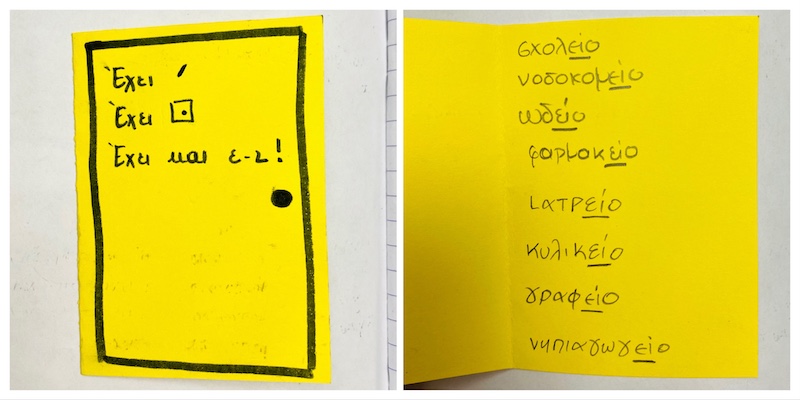 Έχει ʼ
Έχει ⊡
Έχει και ε-ι!
σχολείο
νοσοκομείο
ωδείο
φαρμακείο
ιατρείο
κυλικείο
γραφείο
νηπιαγωγείο